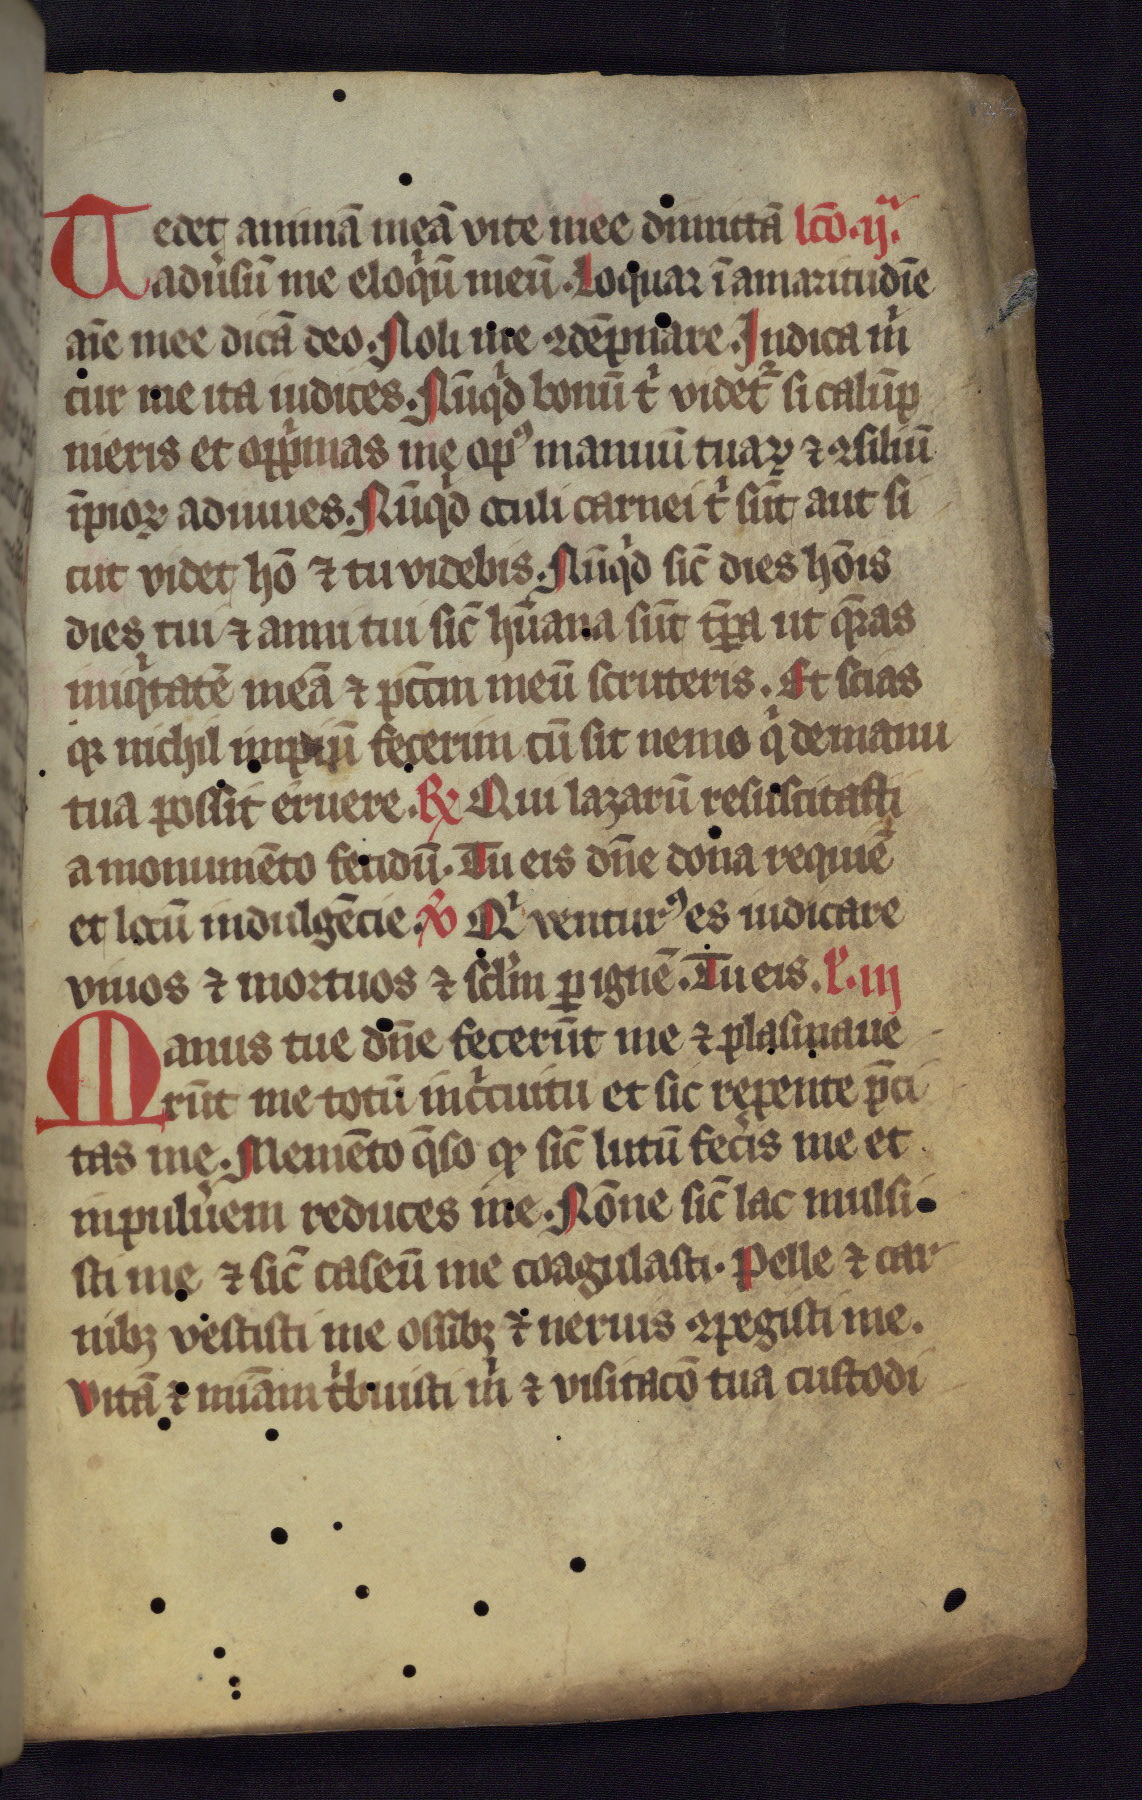 Tedet animā meā vite mee dimittā lcō·ij·ͣ
adũsũ me eloqͥũ meũ. Loquar ī amaritudīe
aīe mee dicā deo. Noli me ꝯdēpnare. Iudica mͥ
cur me ita iudices. Nũqͥd bonũ tͥ videt᷑ si calũp
nieris et opp̃mas me opꝰ manuũ tuaꝝ ⁊ ꝯsiliũ
īpioꝝ adiuues. Nũqͥd oculi carnei tͥ sũt aut si
cut videt hō ⁊ tu videbis. Nũqͥd sic̄ dies hōis
dies tui ⁊ anni tui sic̄ hũana sũt tp̄a ut q̄ras
iniqͥtatē meā ⁊ pc̄cm meũ scruteris. Et scias
qꝛ nichil impiũ fecerim cũ sit nemo qͥ de manu
tua possit eruere. ℟ Qui lazarũ resuscitasti
a monumēto fetidũ. Tu eis dn̄e dona requiē
et locũ indulgēcie. ℣ Qͥ venturꝰ es iudicare
viuos ⁊ mortuos ⁊ sclm̄ ꝑ ignē. Tu eis. l̓·iii
Manus tue dn̄e fecerũt me ⁊ plasmaue
rũt me totũ in cͥcuitu et sic repente p̄ci
tas me. Memēto q̄so qꝛ sic̄ lutũ fec̓is me et
in pulu̓em reduces me. Nōne sic̄ lac mulsi
sti me ⁊ sic̄ caseũ me coagulasti. Pelle ⁊ car
nibꝫ vestisti me ossibꝫ ⁊ neruis ꝯpegisti me.
Vitā ⁊ mīam tͥbuisti mͥ ⁊ visitacō tua custodi